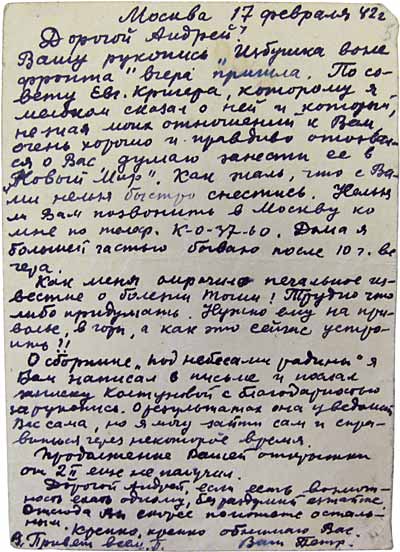 Москва 17 февраля 42 г
Дорогой Андрей!
Вашу рукопись „Избушка возле
фронта" вчера пришла. По со-
вету Евг. Кригера, которому я
мельком сказал о ней и который,
не зная моих отношений к Вам
очень хорошо и правдиво отозвал-
ся о Вас, думаю занести ее в
„Новый Мир". Как жаль, что с Ва-
ми нельзя быстро снестись. Нельзя
ли Вам позвонить в Москву ко
мне по телеф. К-0-37-60. Дома я
большей частью бываю после 10 г. ве
чера.
Как меня омрачило печальное из-
вестие о болезни Тоши! Трудно что
либо придумать. Нужно ему на при-
волье, в горы, а как это сейчас устро-
ить?!
О сборнике „Под небесами родины" я
Вам написал в письме и послал
записку Колтуновой с благодарностью
за рукопись. О результатах она уведомит
Вас сама, но я могу зайти сам и спра-
виться через некоторое время.
Продолжение Вашей открытки
от 2 II еще не получил.
Дорогой Андрей, если есть возмож-
ность ехать одному, без раздумий езжайте
Отсюда Вы скорее поможете осталь-
ным. Крепко, крепко обнимаю Вас.
Привет всем. Ваш Петр.